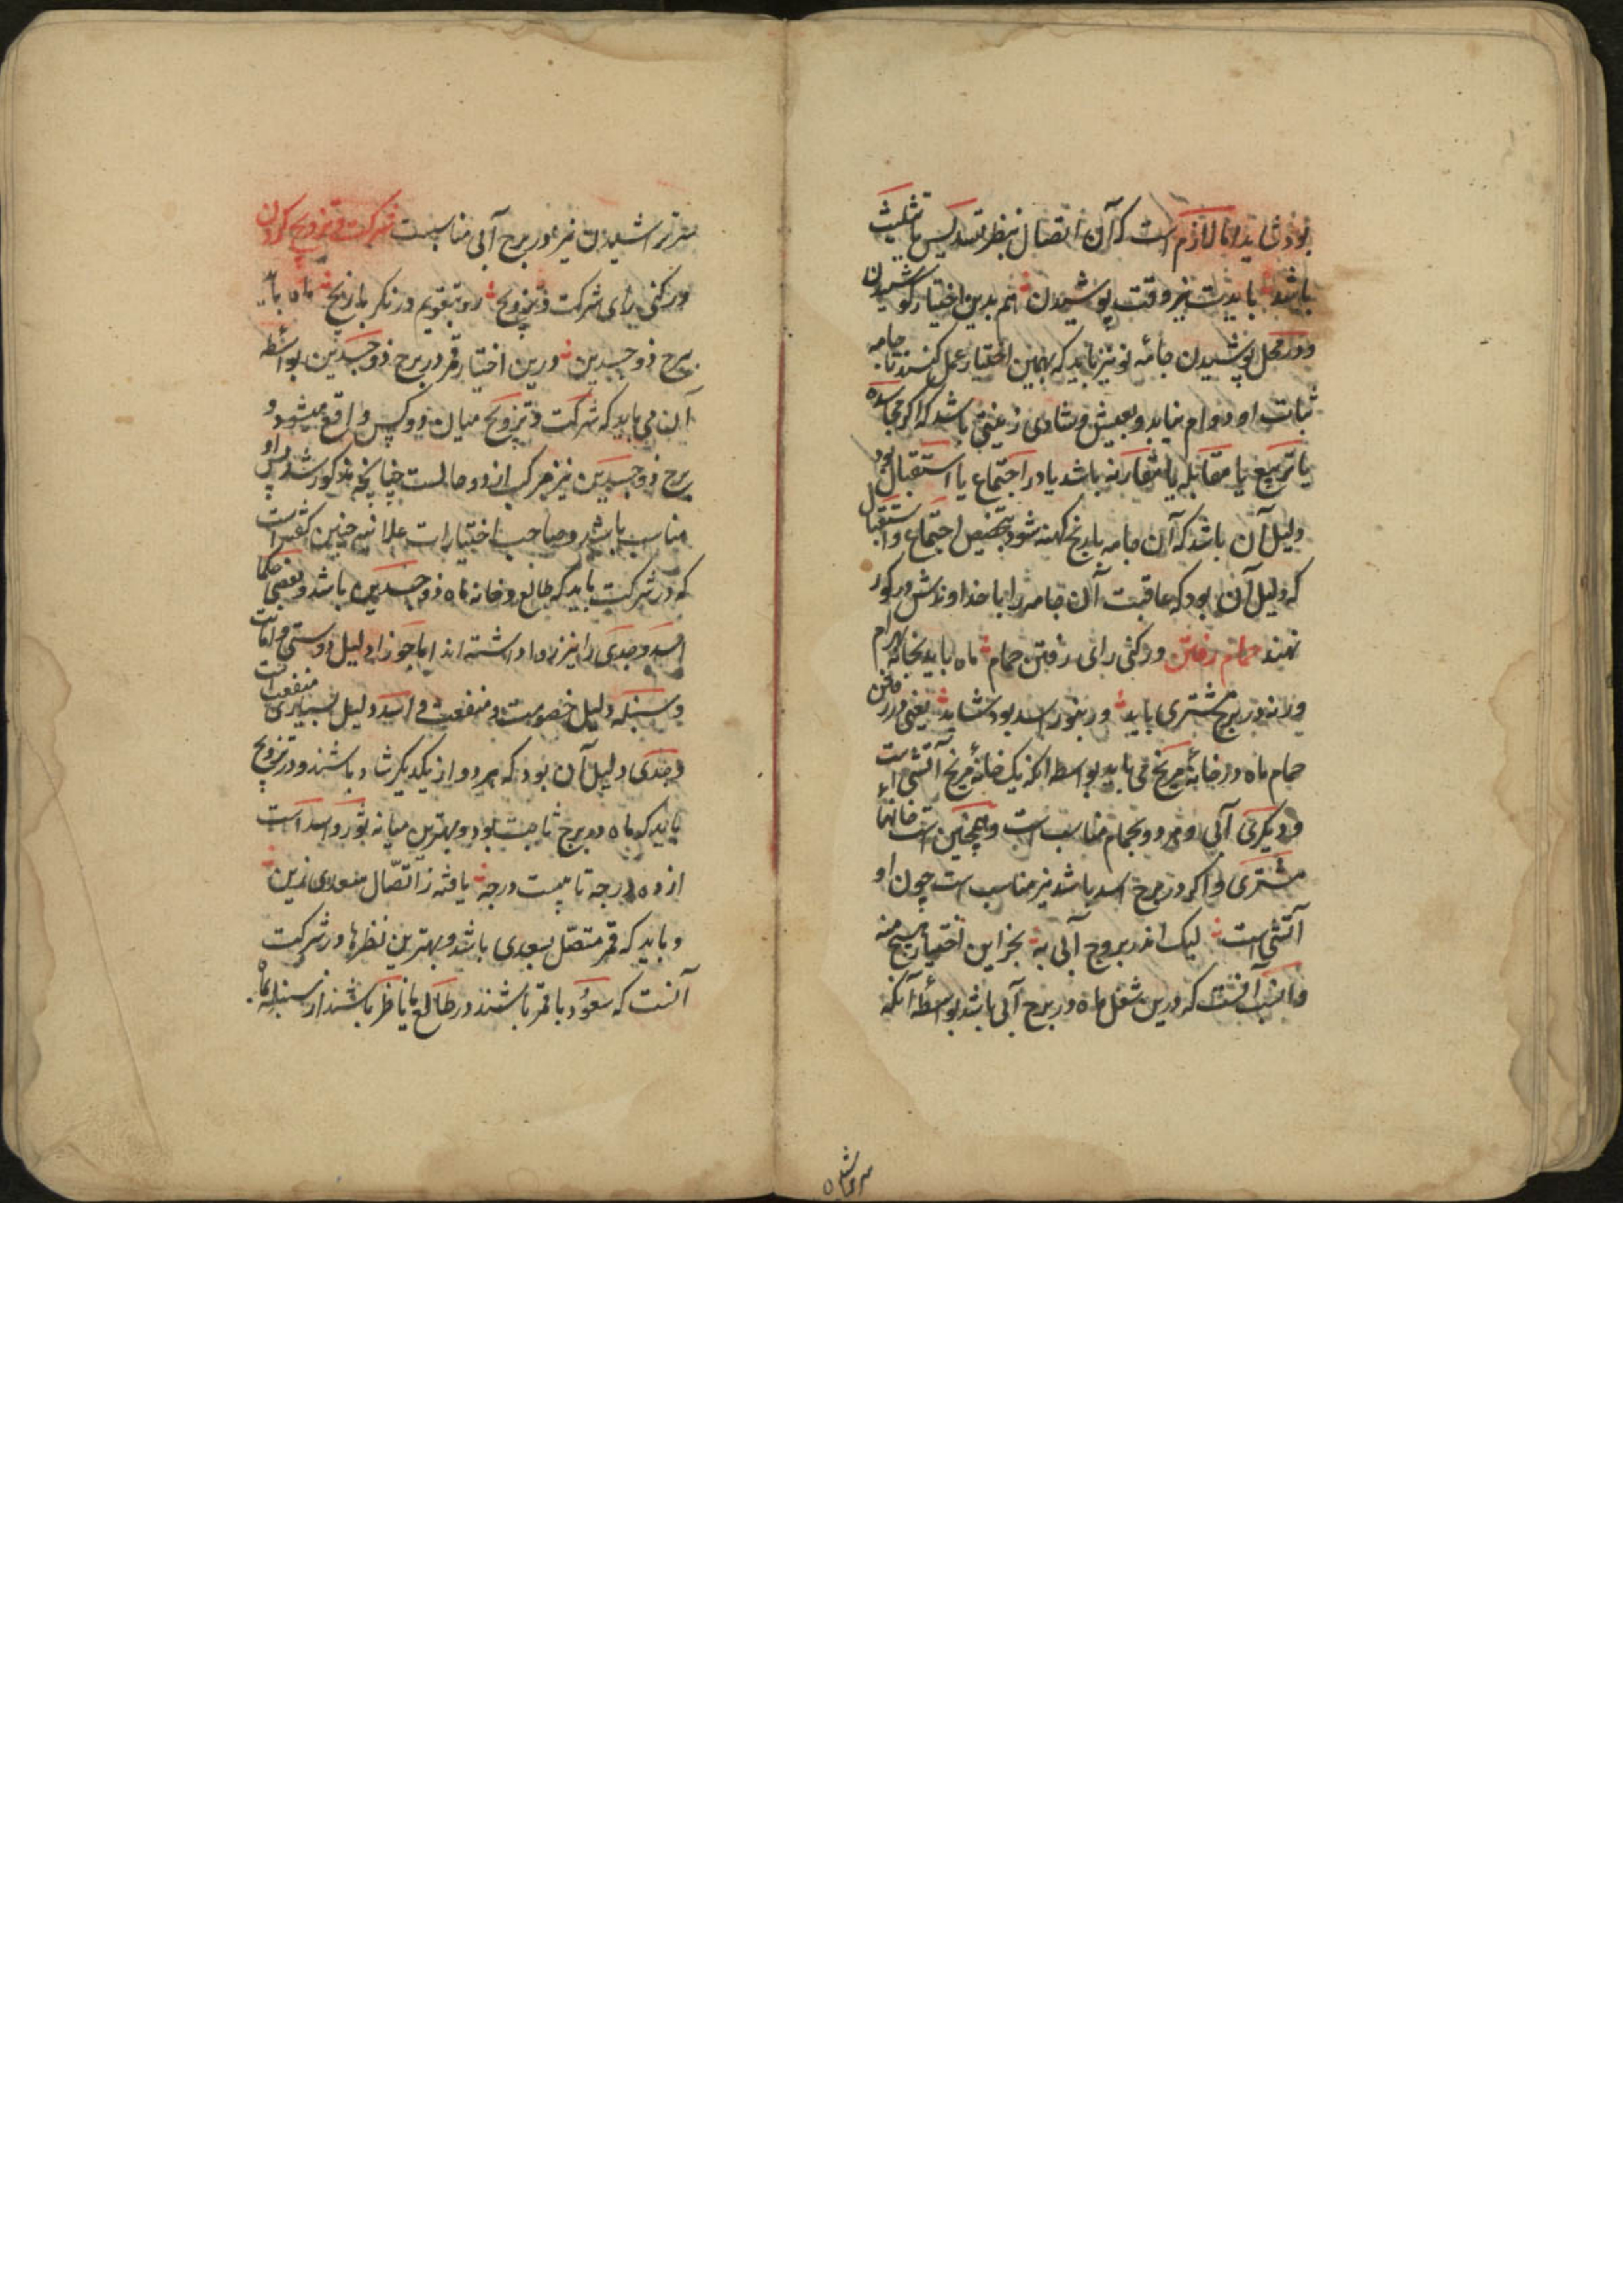 بود شاید اما لازم است که آن اتصال بنظر تسدیس یا تثلیث
باشد بایدت نیز وقت پوشیدن هم بدین اختیار کوشیدن
و در محل پوشیدن جامهٔ نو نیز باید که بهمین اختیار عمل کنند تا جامه
ثبات او دوام نماید و بعیش و شادی باشد که اگر
یا تربیع یا مقابله یا مقارنه باشد یا در اجتماع یا استقبال بود
دلیل آن باشد که آن جامه با رنج کهنه شود بتخصیص اجتماع و استقبال
که دلیل آن بود که عاقبت آن جامه را با خداوندش در کور
نهند حمام رفتن ور کنی رای رفتن حمام ماه باید بخانهٔ بهرام
ورنه در برج مشتری باید ور بنور اسد بود شاید یعنی در رفتن
حمام ماه در خانهٔ مریخ می باید بواسطه انکه یک خانهٔ مریخ آتشی است
و دیگری آبی و هر دو بحمام مناسب است و همچنین است خانهاء
مشتری و اگر در برج اسد باشد نیز مناسب است چون او
آتشی است لیک اندر بروج آبی به بجز این اختیار هیچ منه
و انسب آنست که درین شغل ماه در برج آبی باشد بواسطهٔ آنکه
سر تراشیدن
سر تراشیدن نیز در برج آبی مناسبست شرکت و تزویج کردن
ور کنی رای شرکت و تزویج رو بتقویم در نکر تاریخ ماه باید
ببرج ذو جسدین درین اختیار قمر در برج ذو جسدین بواسطه
آن می باید که شرکت و تزویج میان دو کس واقع میشود و
برج ذو جسدین نیز مرکب از دو حالست چنانچه مذکور شد پس او
مناسب باشد و صاحب اختیارات علائی چنین گفته است
که در شرکت باید که طالع و خانه ماه ذو جسدین باشد و بعضی حکما
اسد و جدی را نیز روا داشته اند اما جوزا دلیل دوستی و امانت
و سنبله دلیل خصومت و منفعت و اسد دلیل بسیاری منفعت است
و جدی دلیل آن بود که هر دو از یکدیگر شاد باشند و در تزویج
باید که ماه در برج ثابت بود و بهترین میانه ثور و اسد است
از ده درجه تا بیست درجه یافته ز اتصال سعدی زین
و باید که قمر متصل بسعدی باشد و بهترین نظرها در شرکت
آنست که سعود با قمر باشند در طالع یا ناظر باشند از سنبله